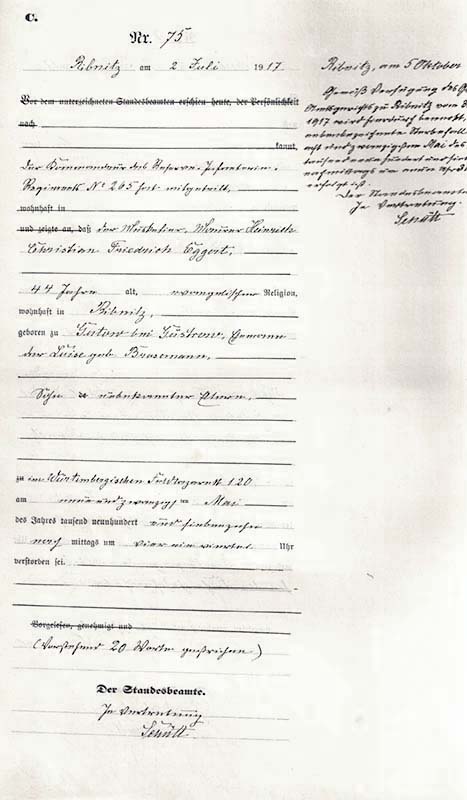 C.
Nr. 75
Ribnitz am 2 Juli 1917
Vor dem unterzeichneten Standesbeamten erschien heute, der Persönlichkeit
nach
kannt,
der Kommandeur des Reserve-Infanterie-
Regiments No 265 hat mitgeteilt,
wohnhaft in
und zeigte an, daß der Musketier, Maurer Heinrich
Christian Friedrich Eggert,
44 Jahre alt, evangelischer Religion,
wohnhaft in Ribnitz,
geboren zu Gutow bei Güstrow, Ehemann
der Luise geb
Sohn unbekannter Eltern,
zu im Württembergischen Feldlazarett 120
am neunundzwanzigsten Mai
des Jahres tausend neunhundert und siebenzehn
nach mittags um vier ein viertel Uhr
verstorben sei.
Vorgelesen, genehmigt und
(Vorstehend 20 Worte gestrichen)
Der Standesbeamte.
In Vertretung
Schütt
Ribnitz, am 5 Oktober
Gemäß Verfügung des
Amtsgerichts zu Ribnitz vom
1917 wird hierdurch bemerkt,
nebenbezeichnete Sterbefall
achtundzwanzigsten Mai des
tausend neunhundert und
nachmittags um Uhr
erfolgt ist.
Der Standesbeamte
In Vertretung.
Schütt